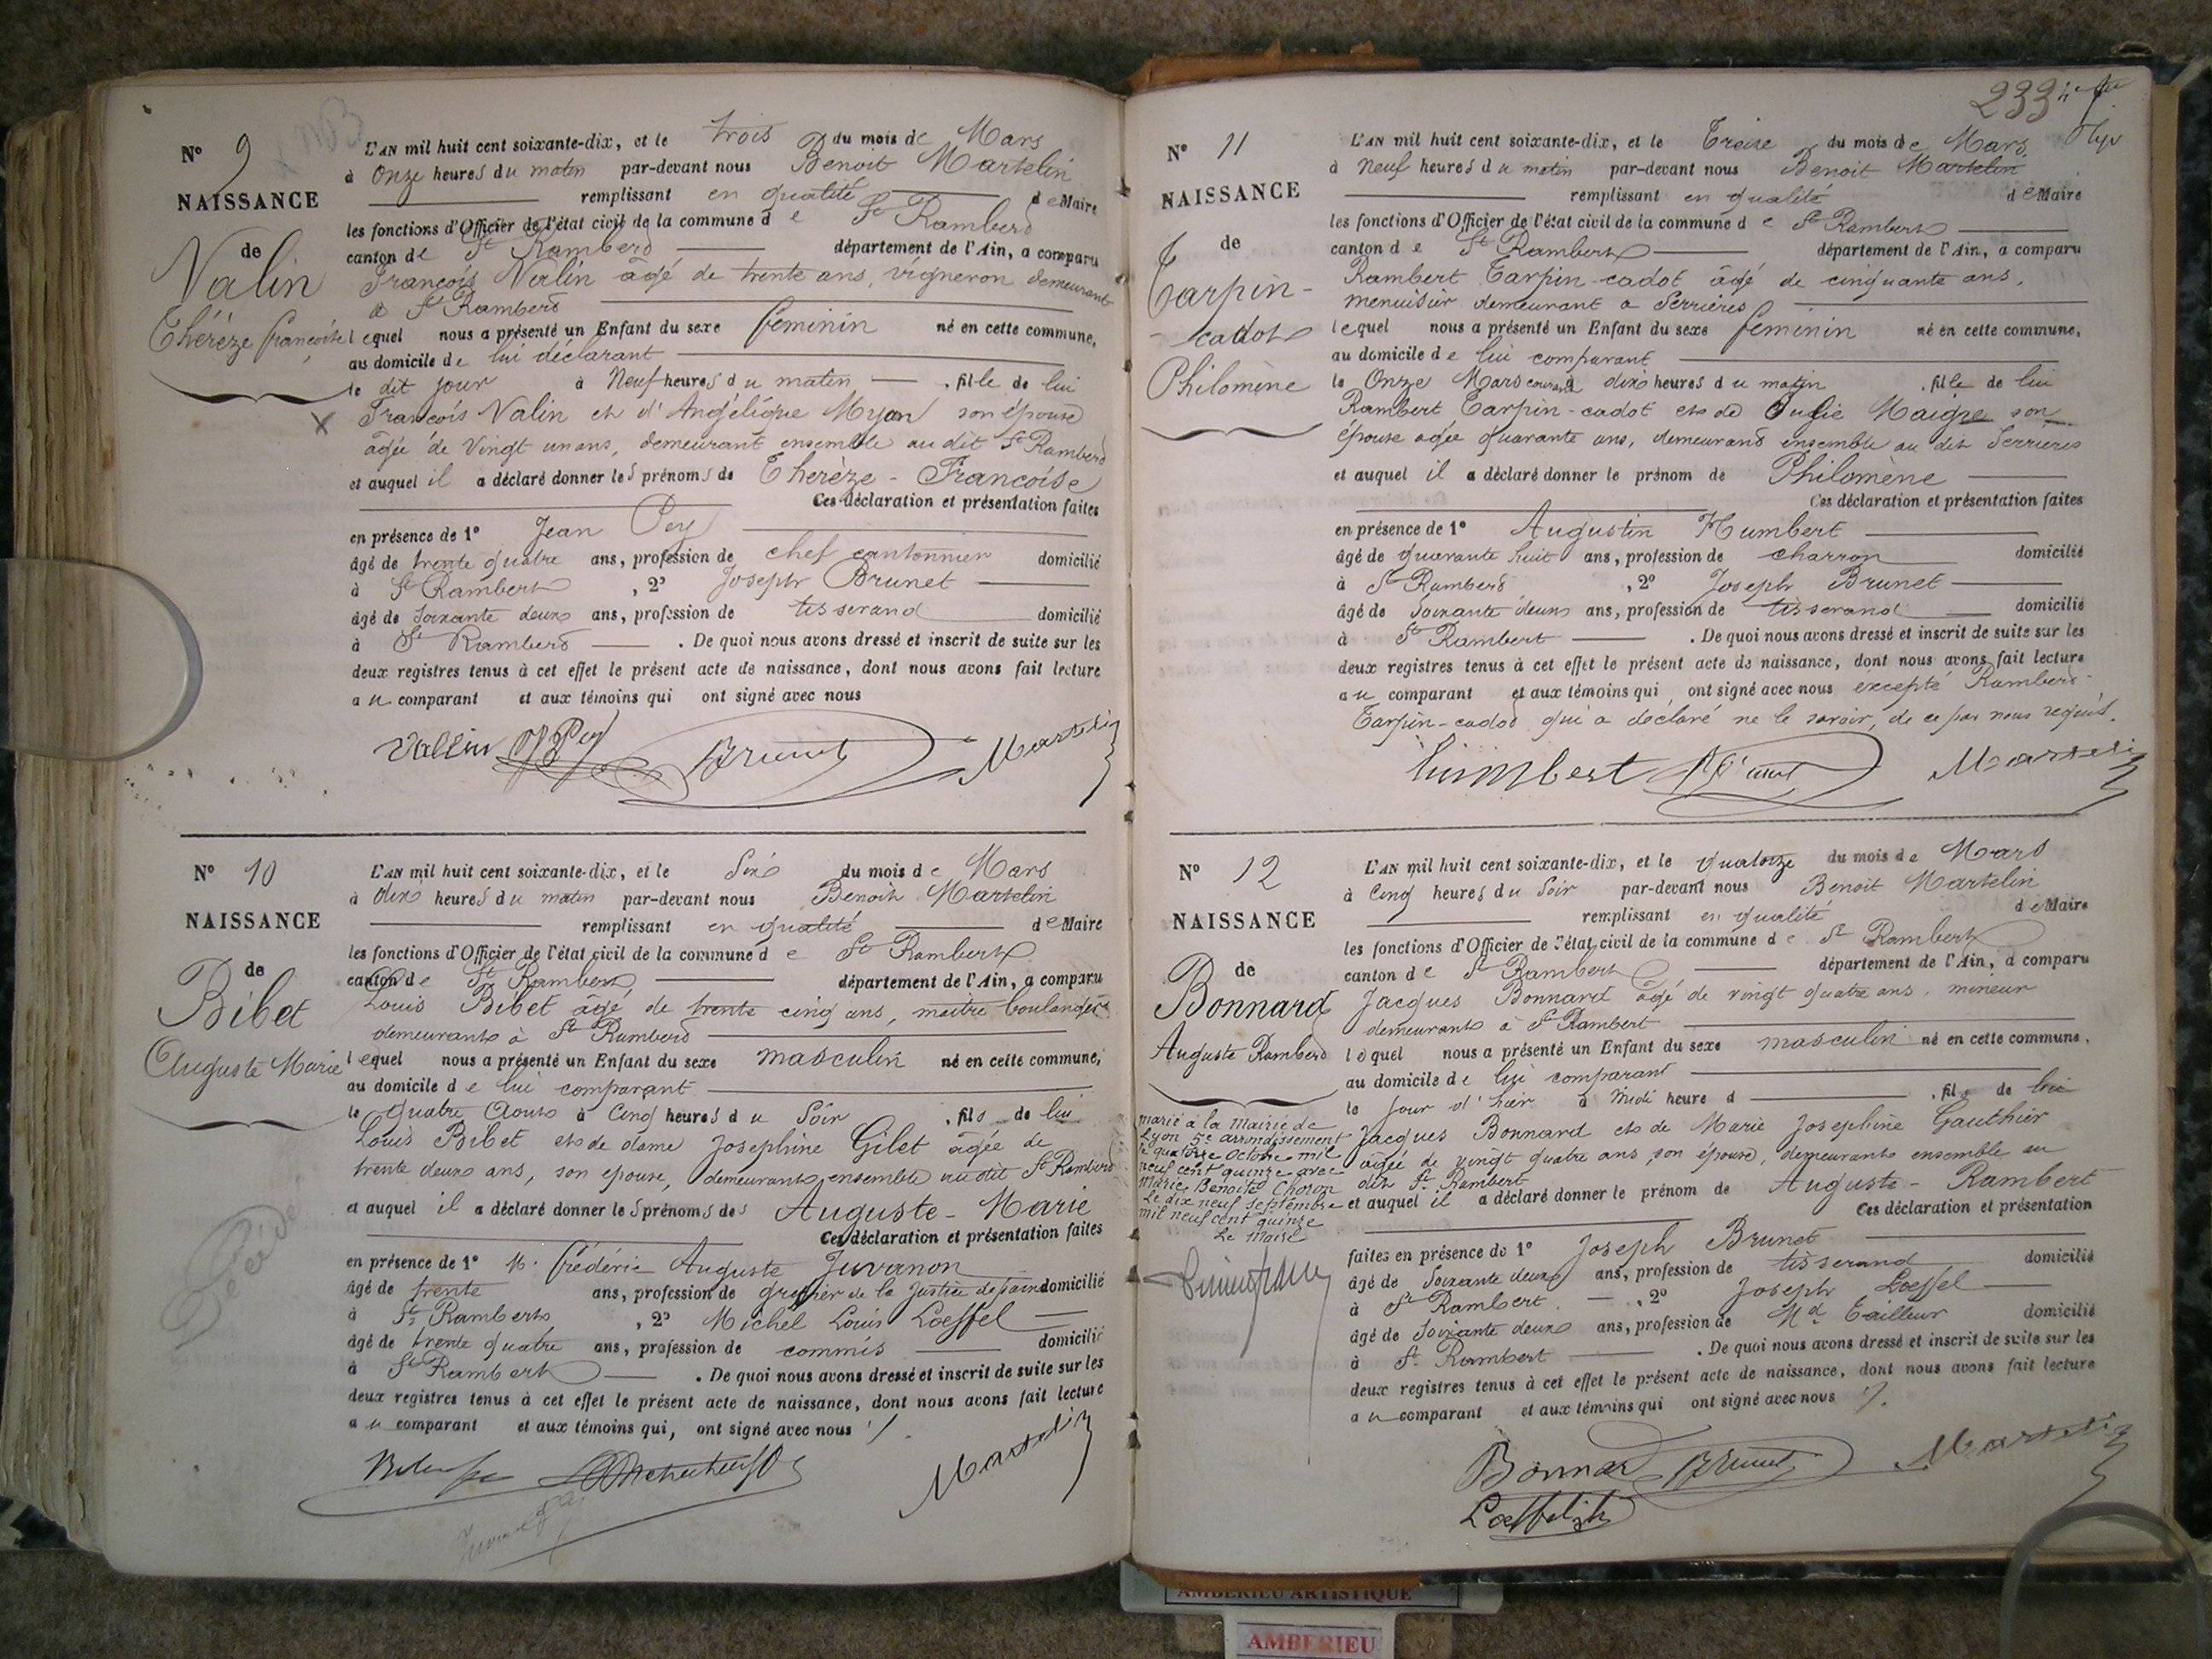 N° 9
NAISSANCE
de
Valin
Thérèze françoise
L'AN mil huit cent soixante-dix, et le trois du mois de Mars
à Onze heures du matin par-devant nous Benoit Martelin
remplissant en qualité de Maire
les fonctions d'Officier de l'état civil de la commune de St Rambert
canton de St Rambert département de l'Ain, a comparu
François Valin âgé de trente ans, vigneron demeurant
à St Rambert
lequel nous a présenté un Enfant du sexe feminin né en cette commune,
au domicile de lui déclarant
le dit jour à Neuf heures du matin, fille de lui
François Valin et d'Angélique Myan son épouse
âgée de Vingt un ans, demeurant ensemble au dit St Rambert
et auquel il a déclaré donner les prénoms de Thérèze - Françoise
Ces déclaration et présentation faites
en présence de 1° Jean Pey
âgé de trente quatre ans, profession de chef cantonnier domicilié
à St Rambert, 2° Joseph Brunet
âgé de soixante deux ans, profession de tisserand domicilié
à St Rambert. De quoi nous avons dressé et inscrit de suite sur les
deux registres tenus à cet effet le présent acte de naissance, dont nous avons fait lecture
au comparant et aux témoins qui ont signé avec nous
Vallin Pey Brunet Martelin
N° 10
NAISSANCE
de
Bibet
Auguste Marie
Décédé
L'AN mil huit cent soixante-dix, et le Six du mois de Mars
à dix heures du matin par-devant nous Benoit Martelin
remplissant en qualité de Maire
les fonctions d'Officier de l'état civil de la commune de St Rambert
canton de St Rambert département de l'Ain, a comparu
Louis Bibet âgé de trente cinq ans, maitre boulanger
demeurant à St Rambert
lequel nous a présenté un Enfant du sexe masculin né en cette commune,
au domicile de lui comparant
le quatre Courant à Cinq heures du Soir, fils de lui
Louis Bibet et de dame Josephine Gilet âgée de
trente deux ans, son epouse, demeurant ensemble au dit St Rambert
et auquel il a déclaré donner les prénoms des Auguste - Marie
Ces déclaration et présentation faites
en présence de 1° M. frédéric Auguste Juvanon
âgé de trente ans, profession de greffier de la Justice de paix domicilié
à St Rambert, 2° Michel Louis Loeffel
âgé de trente quatre ans, profession de commis domicilié
à St Rambert. De quoi nous avons dressé et inscrit de suite sur les
deux registres tenus à cet effet le présent acte de naissance, dont nous avons fait lecture
au comparant et aux témoins qui, ont signé avec nous
Martelin
233
N° 11
NAISSANCE
de
Tarpin-
-cadot
Philomène
L'AN mil huit cent soixante-dix, et le Treize du mois de Mars
à Neuf heures du matin par-devant nous Benoit Martelin
remplissant en qualité de Maire
les fonctions d'Officier de l'état civil de la commune de St Rambert
canton de St Rambert département de l'Ain, a comparu
Rambert Tarpin-cadot âgé de cinquante ans,
menuisier demeurant a Serrières
lequel nous a présenté un Enfant du sexe feminin né en cette commune,
au domicile de lui comparant
le Onze Mars courant à dix heures du matin, fille de lui
Rambert Tarpin-cadot et de Julie Maigre son
épouse agée quarante ans, demeurant ensemble au dit Serrieres
et auquel il a déclaré donner le prénom de Philomène
Ces déclaration et présentation faites
en présence de 1° Augustin Humbert
âgé de quarante huit ans, profession de charron domicilié
à St Rambert, 2° Joseph Brunet
âgé de Soixante deux ans, profession de tisserand domicilié
à St Rambert. De quoi nous avons dressé et inscrit de suite sur les
deux registres tenus à cet effet le présent acte de naissance, dont nous avons fait lecture
au comparant et aux témoins qui ont signé avec nous excepté Rambert
Tarpin-cadot qui a déclaré ne le savoir, de ce par nous requis.
humbert Brunet Martelin
N° 12
NAISSANCE
de
Bonnard
Auguste Rambert
marié à la Mairie de
Lyon 5e arrondissement
le quatorze Octobre mil
neuf cent quinze avec
Marie Benoite Choron
Le dix neuf Septembre
mil neuf cent quinze
Le Maire
L'AN mil huit cent soixante-dix, et le quatorze du mois de Mars
à Cinq heures du Soir par-devant nous Benoit Martelin
remplissant en qualité de Maire
les fonctions d'Officier de l'état civil de la commune de St Rambert
canton de St Rambert département de l'Ain, a comparu
Jacques Bonnard âgé de vingt quatre ans, mineur
demeurant à St Rambert
lequel nous a présenté un Enfant du sexe masculin né en cette commune,
au domicile de lui comparant
le Jour d'hier à Midi heure d, fils de lui
Jacques Bonnard et de Marie Josephine Gauthier
âgée de vingt quatre ans, son épouse, demeurant ensemble au
dit St Rambert
et auquel il a déclaré donner le prénom de Auguste - Rambert
Ces déclaration et présentation
faites en présence de 1° Joseph Brunet
âgé de Soixante deux ans, profession de tisserand domicilié
à St Rambert, 2° Joseph Loeffel
âgé de Soixante deux ans, profession de Md Tailleur domicilié
à St Rambert. De quoi nous avons dressé et inscrit de suite sur les
deux registres tenus à cet effet le présent acte de naissance, dont nous avons fait lecture
au comparant et aux témoins qui ont signé avec nous
Bonnard Brunet Martelin
Loeffel
AMBERIEU ARTISTIQUE
AMBERIEU